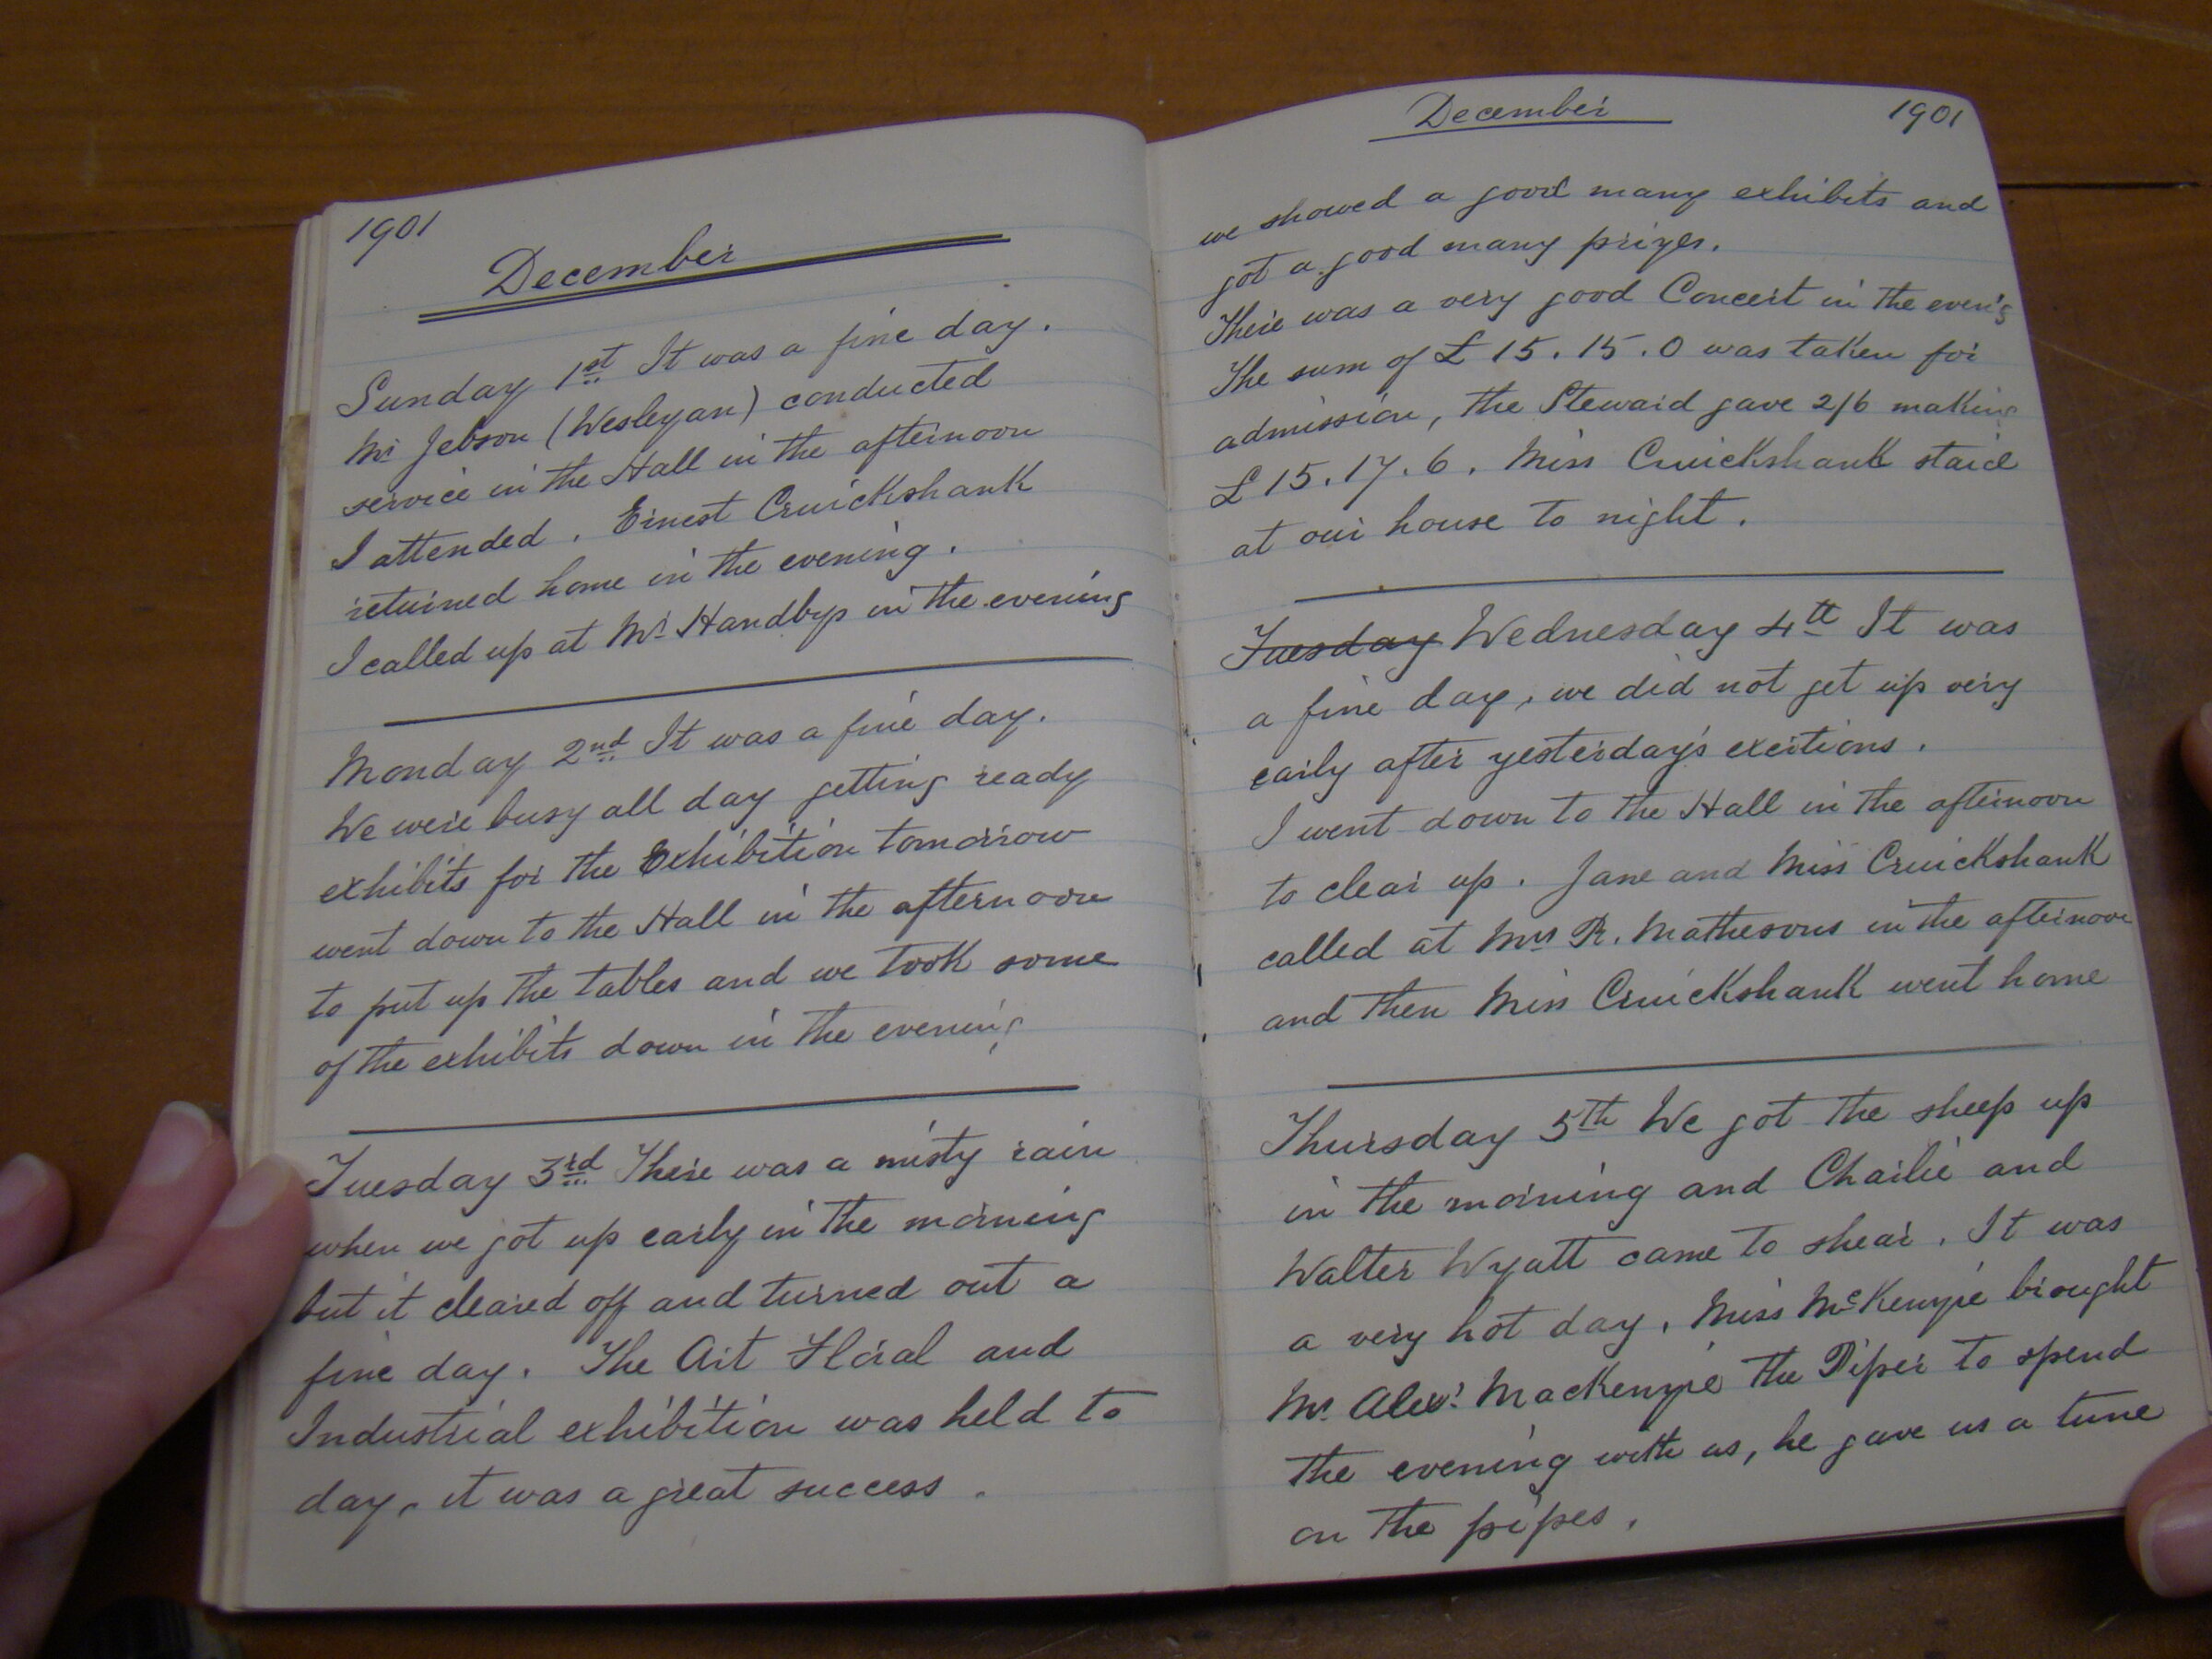 1901
December
Sunday 1st It was a fine day.
Mr Jebson (Wesleyan) conducted
service in the Hall in the afternoon
I attended. Ernest Cruickshank
returned home in the evening.
I called up at Mr Handbys in the evening
Monday 2nd It was a fine day.
We were busy all day getting ready
exhibits for the Exhibition tomorrow
went down to the Hall in the afternoon
to put up the tables and we took some
of the exhibits down in the evening
Tuesday 3rd There was a misty rain
when we got up early in the morning
but it cleared off and turned out a
fine day. The Art Floral and
Industrial exhibition was held to
day, it was a great success.
December 1901
we showed a good many exhibits and
got a good many prizes.
There was a very good Concert in the even'g
The sum of £15.15.0 was taken for
admission, the Steward gave 2/6 making
£15.17.6. Miss Cruickshank staid
at our house to night.
Tuesday Wednesday 4th It was
a fine day, we did not get up very
early after yesterday's exertions.
I went down to the Hall in the afternoon
to clear up. Jane and Miss Cruickshank
called at Mrs R. Mathesons in the afternoon
and then Miss Cruickshank went home
Thursday 5th We got the sheep up
in the morning and Charlie and
Walter Wyatt came to shear. It was
a very hot day. Miss McKenzie brought
Mr Alexr MacKenzie the Piper to spend
the evening with us, he gave us a tune
on the pipes.